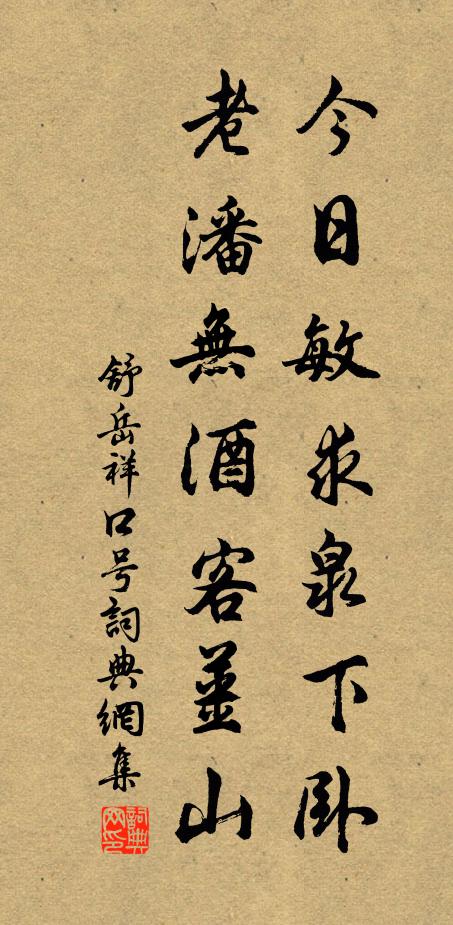 今日敏求泉下卧
老潘無酒客薑山
舒岳祥口号詞典網集
詞典
网印